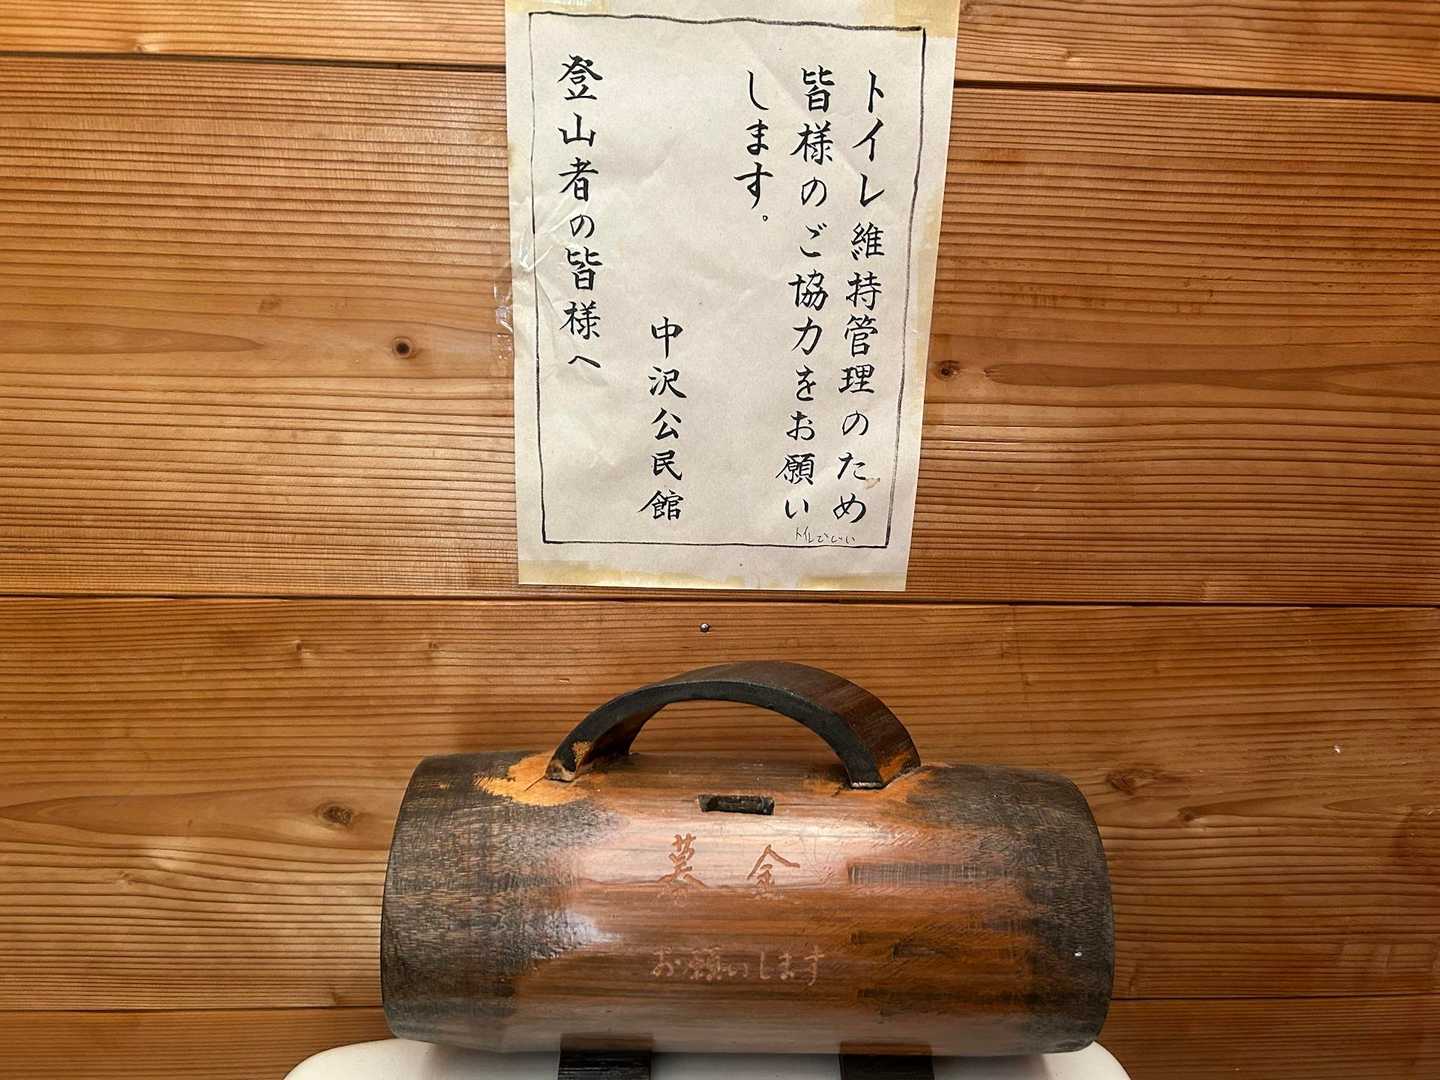 トイレ維持管理のため
皆様のご協力をお願い
します。
中沢公民館
登山者の皆様へ
募金
お願いします